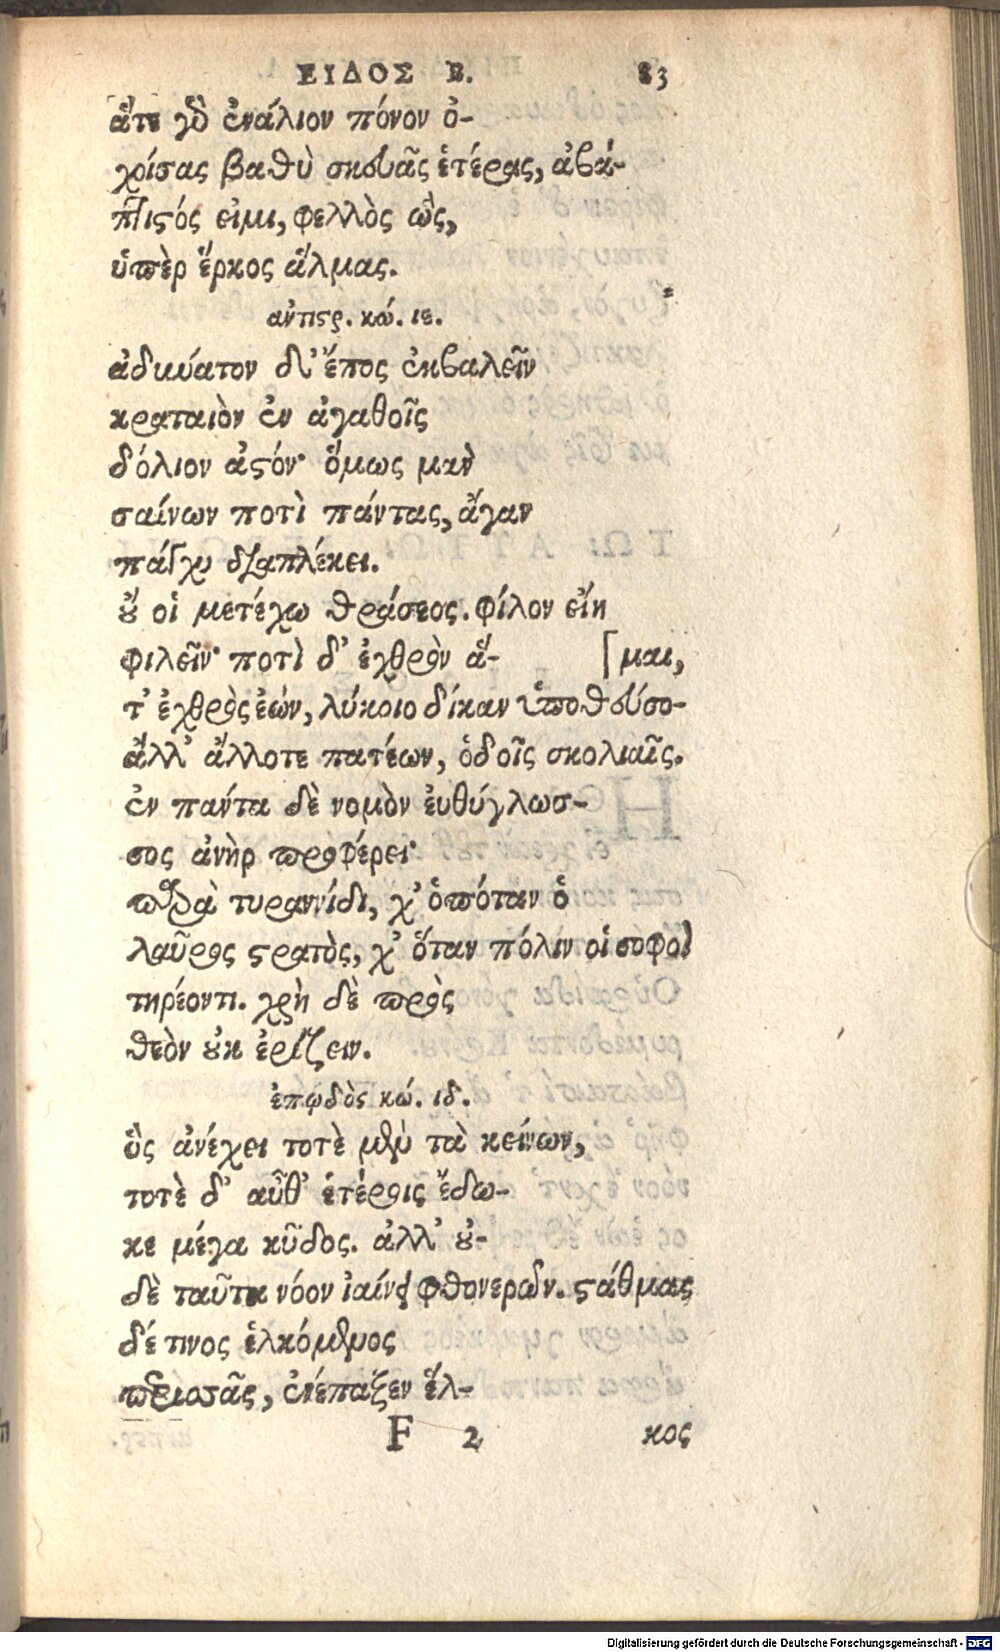 ΕΙΔΟΣ Β. 83
ἅτε γὸ ἐνάλιον πόνον ὀ-
χοίσας βαθὺ σκευᾶς ἑτέρας, ἀβά-
πτιστός εἰμι, φελλὸς ὣς,
ὑπὲρ ἕρκος ἅλμας.
ἀντιστρ. κώ. ιε.
ἀδυνάτον δ' ἔπος ἐκβαλεῖν
κραταιὸν ἐν ἀγαθοῖς
δόλιον ἀστόν· ὅμως μὰν
σαίνων ποτὶ πάντας, ἄγαν
πάγχυ διαπλέκει.
οὔ οἱ μετέχω θράσεος. φίλον εἴη
φιλεῖν· ποτὶ δ' ἐχθρὸν ἅ- [μαι,
τ' ἐχθρὸς ἐών, λύκοιο δίκαν ὑποθεύσο-
ἄλλ' ἄλλοτε πατέων, ὁδοῖς σκολιαῖς.
ἐν πάντα δὲ νομὸν εὐθύγλωσ-
σος ἀνὴρ προφέρει·
παρὰ τυραννίδι, χ' ὁπόταν ὁ
λαῦρος στρατὸς, χ' ὅταν πόλιν οἱ σοφοὶ
τηρέοντι. χρὴ δὲ πρὸς
θεὸν οὐκ ἐρίζειν.
ἐπῳδὸς κώ. ιδ.
ὃς ἀνέχει τοτὲ μὲν τὰ κείνων,
τοτὲ δ' αὖθ' ἑτέροις ἔδω-
κε μέγα κῦδος. ἀλλ' οὐ-
δὲ ταῦτα νόον ἰαίνει φθονερῶν. στάθμας
δέ τινος ἑλκόμενος
περιοσᾶς, ἐνέπαξεν ἕλ-
F 2 κος
Digitalisierung gefördert durch die Deutsche Forschungsgemeinschaft - DFG